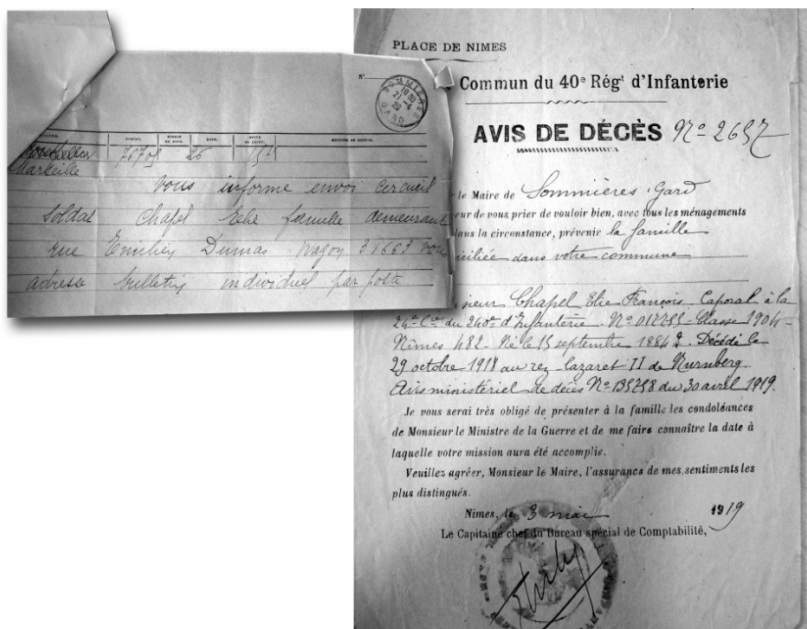 N°
SOMMIERES
GARD
Montpellier 75708 26
Marseille
vous informe envoi cercueil
soldat Chapel Elie famille demeurant
rue Emilien Dumas wagon 31663 vou
adresse bulletin individuel par poste
PLACE DE NIMES
Commun du 40e Régt d'Infanterie
AVIS DE DÉCÈS No 2657
le Maire de Sommières Gard
eur de vous prier de vouloir bien, avec tous les ménagements
dans la circonstance, prévenir la famille
iciliée dans votre commune
sieur Chapel Elie François Caporal à la
24e Cie du 240e d'Infanterie No 017255 Classe 1904
Nîmes 482. Né le 15 septembre 1884 Décédé le
29 octobre 1918 au rez. lazaret II de Nurnberg.
Avis ministériel de décès No 135758 du 30 avril 1919.
Je vous serai très obligé de présenter à la famille les condoléances
de Monsieur le Ministre de la Guerre et de me faire connaître la date à
laquelle votre mission aura été accomplie.
Veuillez agréer, Monsieur le Maire, l'assurance de mes sentiments les
plus distingués.
Nimes, le 3 mai 1919
Le Capitaine chef du Bureau spécial de Comptabilité,